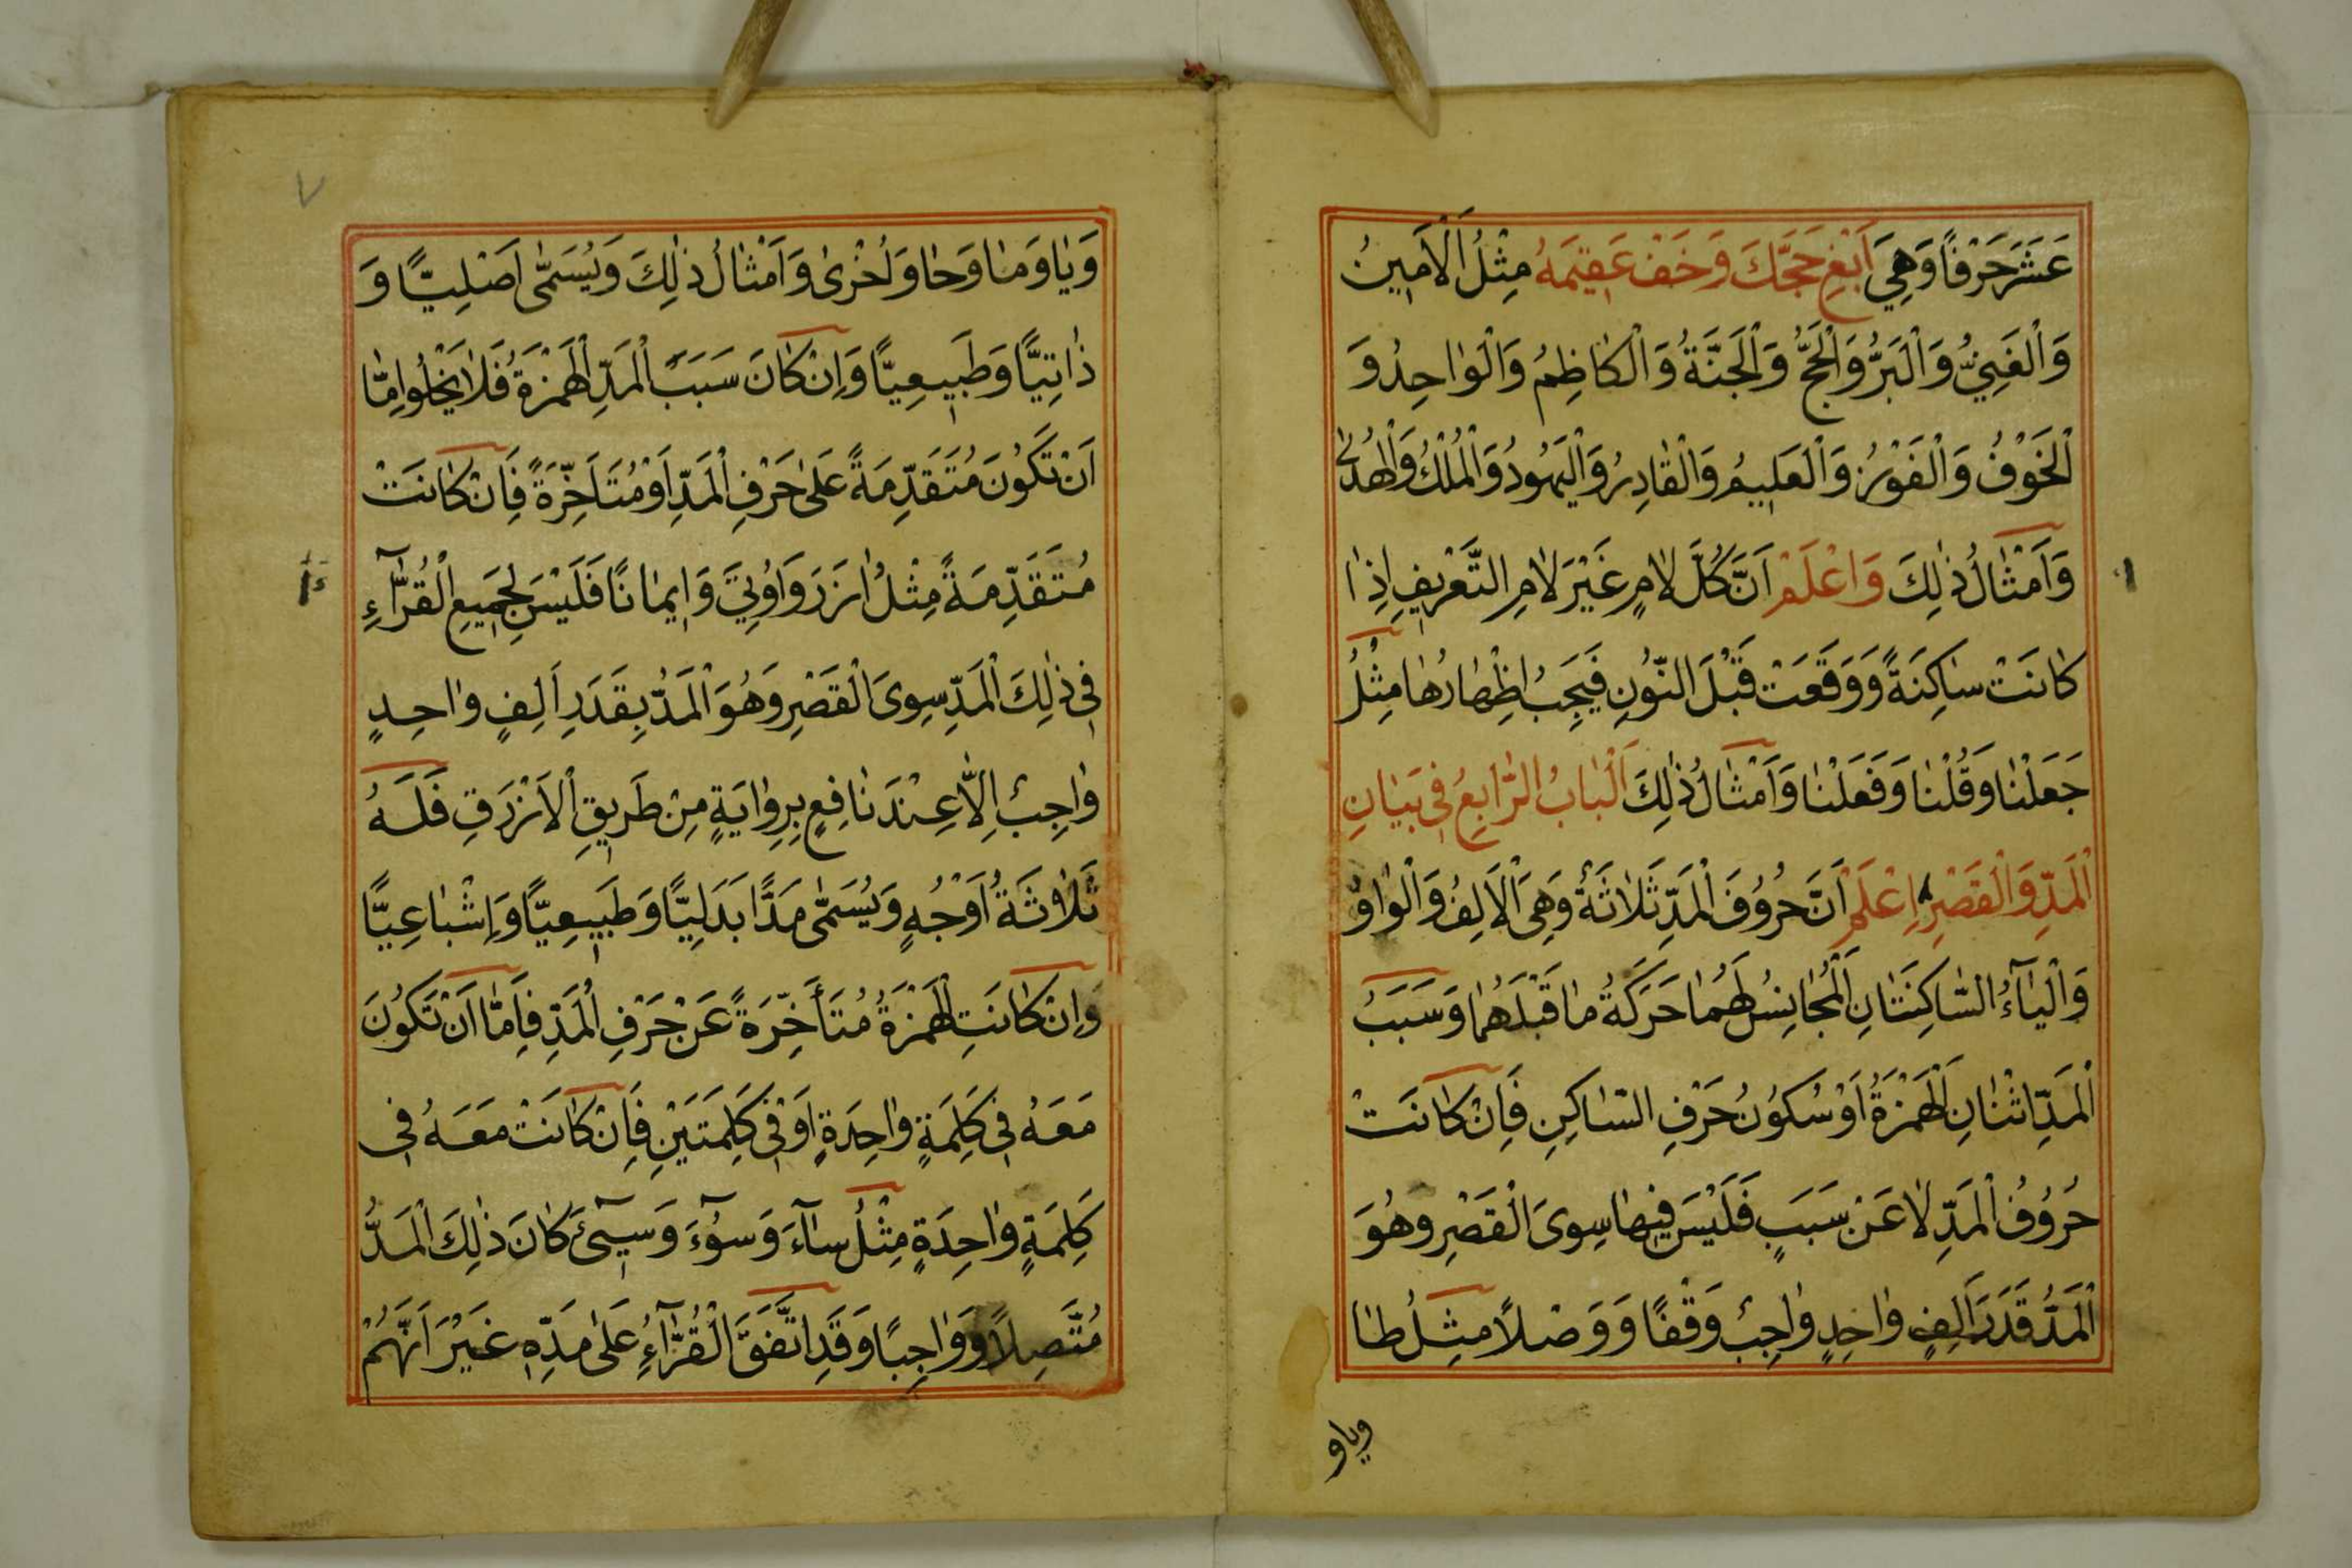 عَشَرَ حَرْفًا وَهِيَ اَبْغِ حَجَّكَ وَخَفْ عَقِيمَهُ مِثْلُ اَلْاَمِينُ
وَالْغَنِيُّ وَالْبَرُّ وَالْحَجُّ وَالْجَنَّةُ وَالْكَاظِمُ وَالْوٰاحِدُ وَ
الْخَوْفُ وَالْفَوْزُ وَالْعَلِيمُ وَالْقَادِرُ وَالْيَهُودُ وَالْمُلْكُ وَالْهُدٰى
وَاَمْثٰالُ ذٰلِكَ وَاعْلَمْ اَنَّ كُلَّ لٰامٍ غَيْرَ لٰامِ التَّعْرِيفِ اِذٰا
كٰانَتْ سٰاكِنَةً وَوَقَعَتْ قَبْلَ النُّونِ فَيَجِبُ اِظْهٰارُهٰا مِثْلُ
جَعَلْنٰا وَقُلْنٰا وَفَعَلْنٰا وَاَمْثٰالُ ذٰلِكَ اَلْبٰابُ الرّٰابِعُ فِي بَيٰانِ
الْمَدِّ وَالْقَصْرِ اِعْلَمْ اَنَّ حُرُوفَ الْمَدِّ ثَلٰاثَةٌ وَهِىَ الْاَلِفُ وَالْوٰاوُ
وَالْيٰآءُ السّٰاكِنَتٰانِ الْمُجٰانِسُ لَهُمٰا حَرَكَةُ مٰا قَبْلَهُمٰا وَسَبَبُ
الْمَدِّ اثْنٰانِ اَلْهَمْزَةُ اَوْ سُكُونُ حَرْفِ السّٰاكِنِ فَاِنْ كٰانَتْ
حُرُوفُ الْمَدِّ لٰا عَنْ سَبَبٍ فَلَيْسَ فِيهٰا سِوىَ الْقَصْرِ وَهُوَ
الْمَدُّ قَدَرَ اَلِفٍ وٰاحِدٍ وٰاجِبٌ وَقْفًا وَوَصْلًا مِثْلُ طٰا
وياو
٧
وَيٰا وَمٰا وَحٰا وَاُخْرىٰ وَاَمْثٰالُ ذٰلِكَ وَيُسَمّٰى اَصْلِيًّا وَ
ذٰاتِيًّا وَطَبِيعِيًّا وَاِنْ كٰانَ سَبَبُ الْمَدِّ الْهَمْزَةُ فَلٰا يَخْلُوا اِمّٰا
اَنْ تَكُونَ مُتَقَدِّمَةً عَلىٰ حَرْفِ الْمَدِّ اَوْ مُتَاَخِّرَةً فَاِنْ كٰانَتْ
مُتَقَدِّمَةً مِثْلُ اٰزَرَ وَاُوتِيَ وَاِيمٰانًا فَلَيْسَ لِجَمِيعِ الْقُرّٰآءِ
فِي ذٰلِكَ الْمَدِّ سِوىَ الْقَصْرِ وَهُوَ الْمَدُّ بِقَدَرِ اَلِفٍ وٰاحِدٍ
وٰاجِبٌ اِلّٰا عِنْدَ نٰافِعٍ بِرِوٰايَةٍ مِنْ طَرِيقِ الْاَزْرَقِ فَلَهُ
ثَلٰاثَةُ اَوْجُهٍ وَيُسَمّٰى مَدًّا بَدَلِيًّا وَطَبِيعِيًّا وَاِشْبٰاعِيًّا
وَاِنْ كٰانَتِ الْهَمْزَةُ مُتَأَخِّرَةً عَنْ حَرْفِ الْمَدِّ فَاِمّٰا اَنْ تَكُونَ
مَعَهُ فِي كَلِمَةٍ وٰاحِدَةٍ اَوْ فِي كَلِمَتَيْنِ فَاِنْ كٰانَتْ مَعَهُ فِي
كَلِمَةٍ وٰاحِدَةٍ مِثْلُ سٰآءَ وَسُوٓءَ وَسِيٓئَ كٰانَ ذٰلِكَ الْمَدُّ
مُتَّصِلًا وَوٰاجِبًا وَقَدِ اتَّفَقَ الْقُرّٰآءُ عَلىٰ مَدِّهِ غَيْرَ اَنَّهُمْ